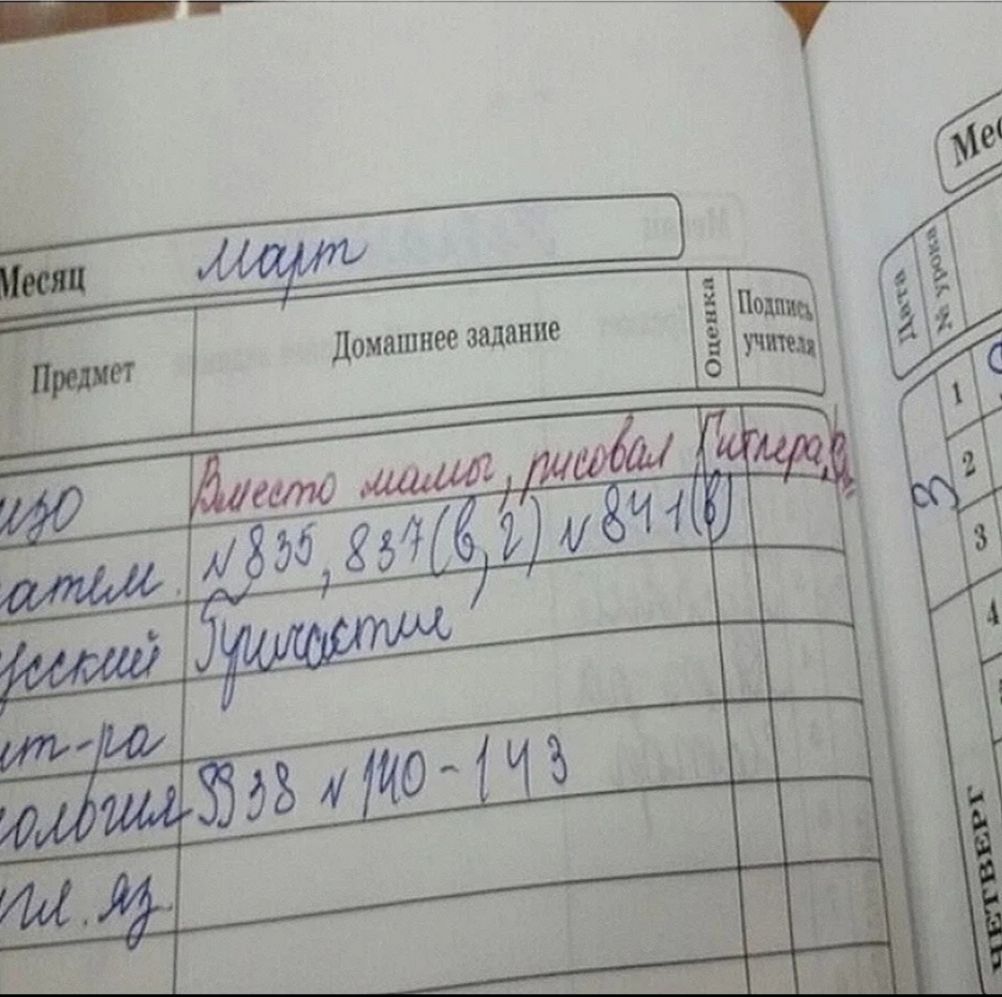 Месяц Март
Предмет Домашнее задание Оценка Подпись учителя
изо Вместо мамы, рисовал Гитлера,
атем. №835, 837(в,г) №841(в)
усский Причастие
ит-ра
ология §§38 №140-143
гл. яз.
Мес
Дата № Урока
1
2
3
3
4
ЧЕТВЕРГ